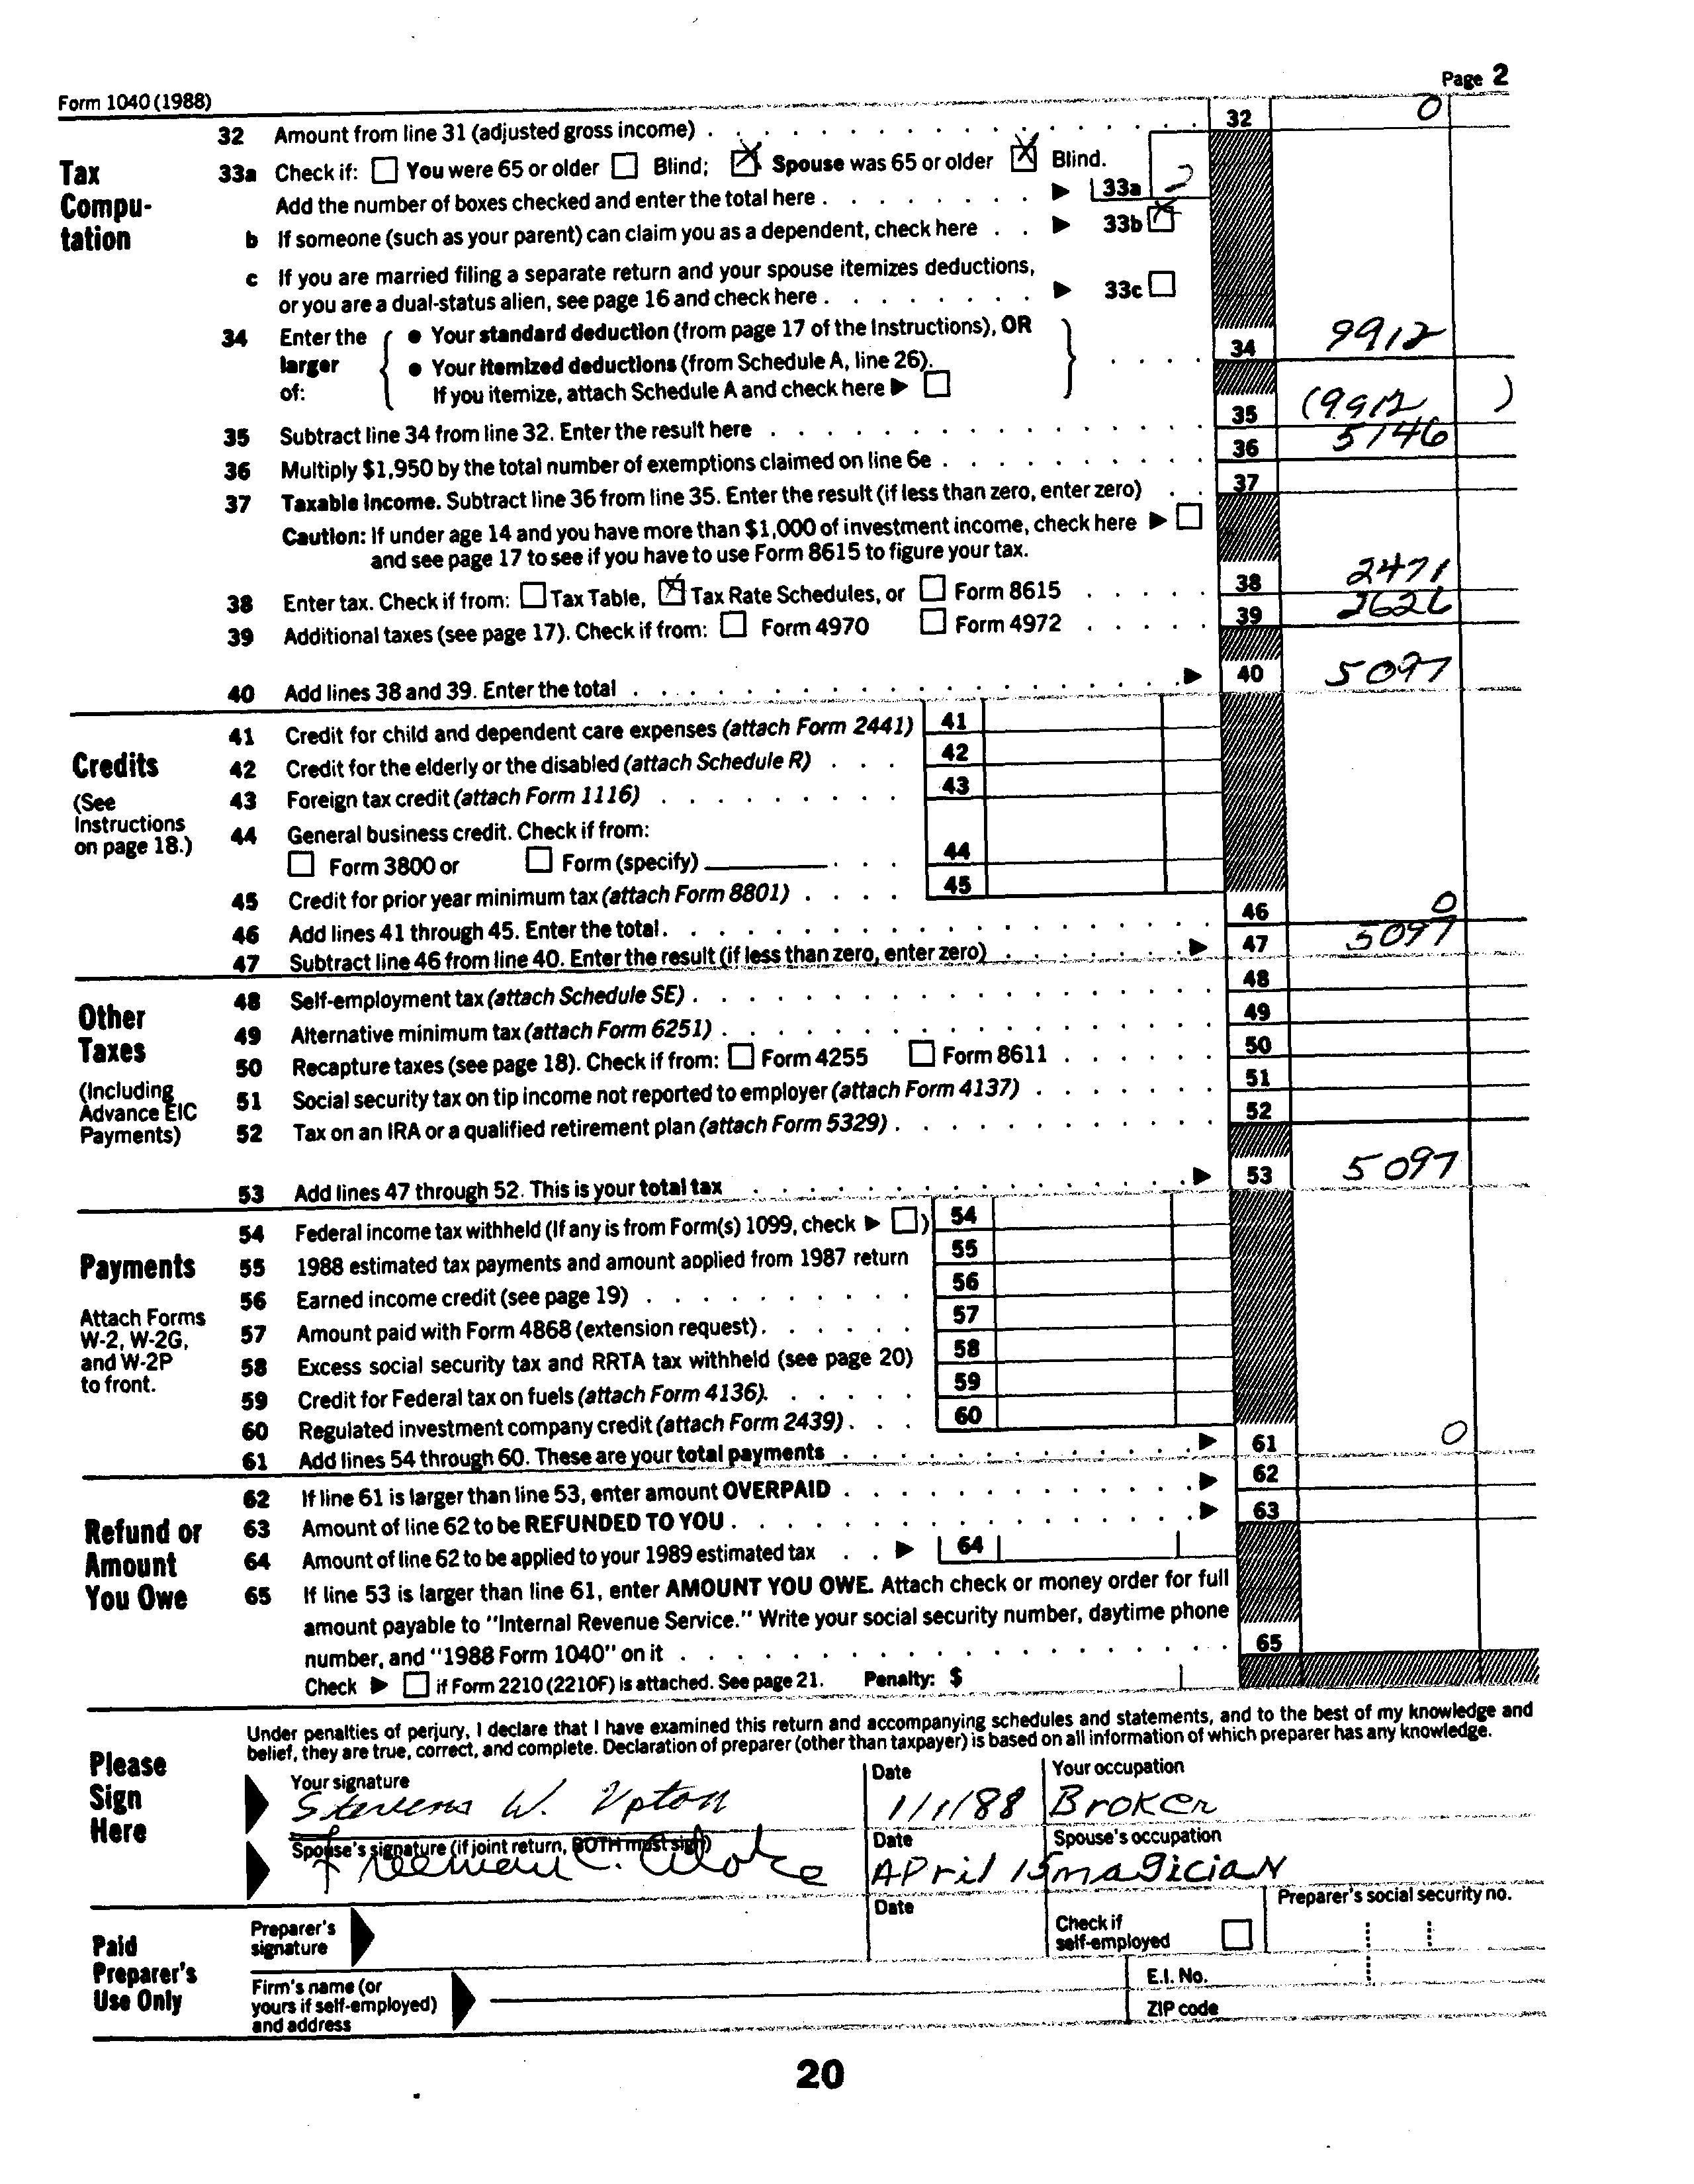 Form 1040 (1988)
Page 2
32 Amount from line 31 (adjusted gross income) . . . 32 0
Tax Compu-tation
33a Check if: ☐ You were 65 or older ☐ Blind; ☒ Spouse was 65 or older ☒ Blind.
Add the number of boxes checked and enter the total here . . . ▶ 33a 2
b If someone (such as your parent) can claim you as a dependent, check here . . ▶ 33b ☒
c If you are married filing a separate return and your spouse itemizes deductions,
or you are a dual-status alien, see page 16 and check here . . . ▶ 33c ☐
34 Enter the larger of:
● Your standard deduction (from page 17 of the Instructions), OR
● Your itemized deductions (from Schedule A, line 26).
If you itemize, attach Schedule A and check here ▶ ☐
. . . . 34 9912
35 Subtract line 34 from line 32. Enter the result here . . . 35 (9912 )
36 Multiply $1,950 by the total number of exemptions claimed on line 6e . . . 36 5146
37 Taxable income. Subtract line 36 from line 35. Enter the result (if less than zero, enter zero) . . 37
Caution: If under age 14 and you have more than $1,000 of investment income, check here ▶ ☐
and see page 17 to see if you have to use Form 8615 to figure your tax.
38 Enter tax. Check if from: ☐ Tax Table, ☒ Tax Rate Schedules, or ☐ Form 8615 . . . 38 2471
39 Additional taxes (see page 17). Check if from: ☐ Form 4970 ☐ Form 4972 . . . 39 2626
40 Add lines 38 and 39. Enter the total . . . ▶ 40 5097
Credits
(See Instructions on page 18.)
41 Credit for child and dependent care expenses (attach Form 2441) 41
42 Credit for the elderly or the disabled (attach Schedule R) . . . 42
43 Foreign tax credit (attach Form 1116) . . . 43
44 General business credit. Check if from:
☐ Form 3800 or ☐ Form (specify) . . . 44
45 Credit for prior year minimum tax (attach Form 8801) . . . . 45
46 Add lines 41 through 45. Enter the total . . . 46 0
47 Subtract line 46 from line 40. Enter the result (if less than zero, enter zero) . . . ▶ 47 5097
Other Taxes
(Including Advance EIC Payments)
48 Self-employment tax (attach Schedule SE) . . . 48
49 Alternative minimum tax (attach Form 6251) . . . 49
50 Recapture taxes (see page 18). Check if from: ☐ Form 4255 ☐ Form 8611 . . . 50
51 Social security tax on tip income not reported to employer (attach Form 4137) . . . 51
52 Tax on an IRA or a qualified retirement plan (attach Form 5329) . . . 52
53 Add lines 47 through 52. This is your total tax . . . ▶ 53 5097
Payments
Attach Forms W-2, W-2G, and W-2P to front.
54 Federal income tax withheld (If any is from Form(s) 1099, check ▶ ☐) 54
55 1988 estimated tax payments and amount applied from 1987 return 55
56 Earned income credit (see page 19) . . . 56
57 Amount paid with Form 4868 (extension request) . . . 57
58 Excess social security tax and RRTA tax withheld (see page 20) 58
59 Credit for Federal tax on fuels (attach Form 4136) . . . 59
60 Regulated investment company credit (attach Form 2439) . . . 60
61 Add lines 54 through 60. These are your total payments . . . ▶ 61 0
Refund or Amount You Owe
62 If line 61 is larger than line 53, enter amount OVERPAID . . . ▶ 62
63 Amount of line 62 to be REFUNDED TO YOU . . . ▶ 63
64 Amount of line 62 to be applied to your 1989 estimated tax . . ▶ 64
65 If line 53 is larger than line 61, enter AMOUNT YOU OWE. Attach check or money order for full
amount payable to "Internal Revenue Service." Write your social security number, daytime phone
number, and "1988 Form 1040" on it . . . 65
Check ▶ ☐ if Form 2210 (2210F) is attached. See page 21. Penalty: $
Please Sign Here
Under penalties of perjury, I declare that I have examined this return and accompanying schedules and statements, and to the best of my knowledge and
belief, they are true, correct, and complete. Declaration of preparer (other than taxpayer) is based on all information of which preparer has any knowledge.
Your signature Date Your occupation
Stevens W. Upton 1/1/88 Broker
Spouse's signature (if joint return, BOTH must sign) Date Spouse's occupation
Freeman C. April 15 magician
Paid Preparer's Use Only
Preparer's signature Date Check if self-employed ☐ Preparer's social security no.
Firm's name (or yours if self-employed) and address
E.I. No.
ZIP code
20